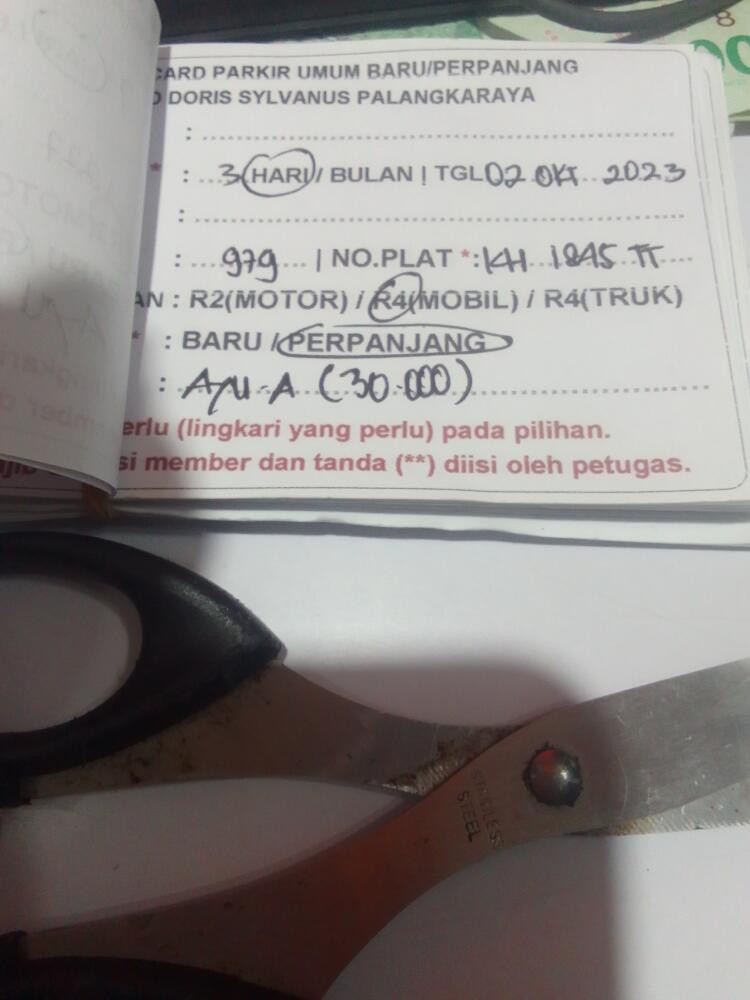 CARD PARKIR UMUM BARU/PERPANJANG
DORIS SYLVANUS PALANGKARAYA
: ........
* : 3 HARI / BULAN | TGL 02 OKT 2023
: ........
: 979 | NO.PLAT *: KH 1845 TT
AN : R2(MOTOR) / R4(MOBIL) / R4(TRUK)
* : BARU / PERPANJANG
: (30.000)
erlu (lingkari yang perlu) pada pilihan.
si member dan tanda (**) diisi oleh petugas.
STAINLESS
STEEL
8